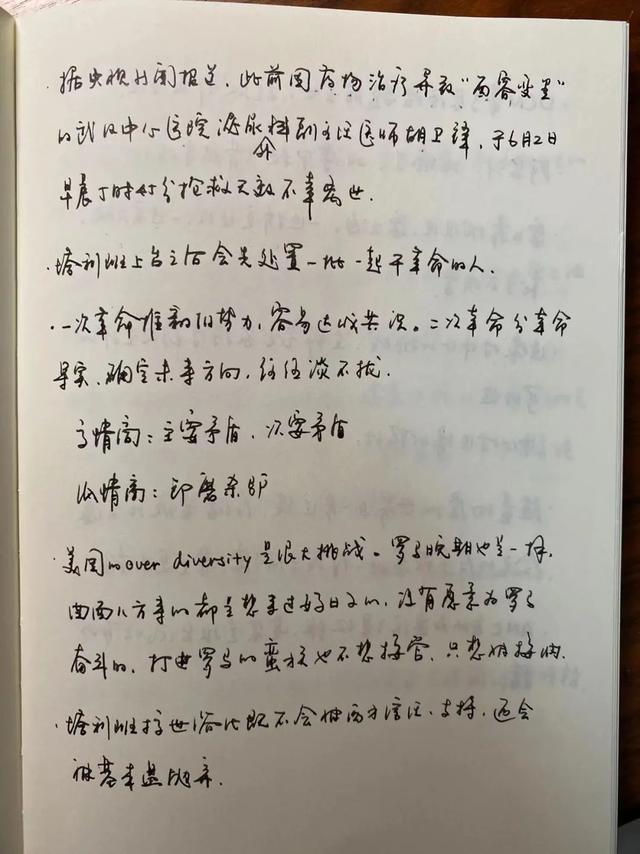 ·据央视新闻报道，此前因药物治疗导致“面容变黑”
的武汉中心医院泌尿外科副主任医师胡卫锋，于6月2日
早晨5时45分抢救无效不幸离世.
·塔利班上台之后会先处置一批一起干革命的人.
·一次革命推翻旧势力，容易达成共识。二次革命分革命
果实、确定未来方向，往往谈不拢.
高情商：主要矛盾、次要矛盾
低情商：卸磨杀驴
·美国的over diversity是很大挑战。罗马晚期也是一样，
四面八方来的都是想来过好日子的，没有愿意为罗马
奋斗的，打进罗马的蛮族也不想接管，只想
·塔利班搞世俗化既不会被西方信任、支持，还会
被基本盘抛弃.